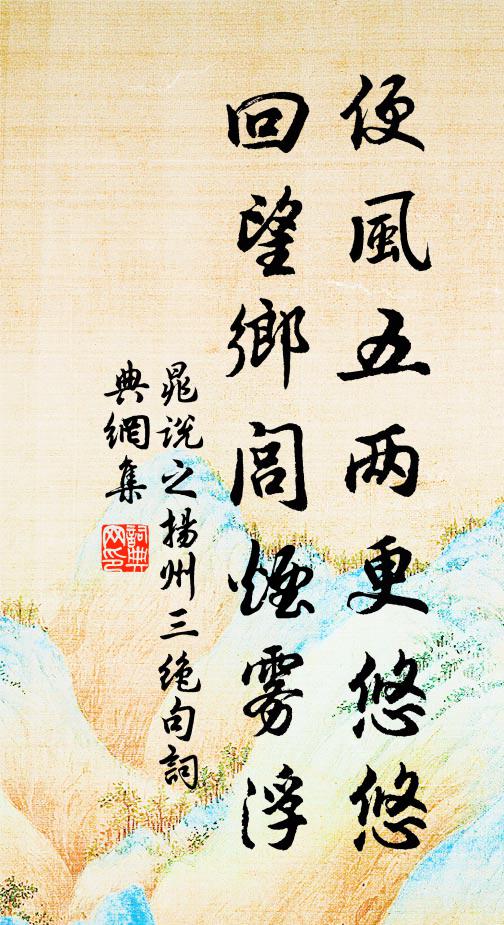 便風五两更悠悠
回望鄉閭煙雾浮
晁説之揚州三絶句詞
典網集
詞典